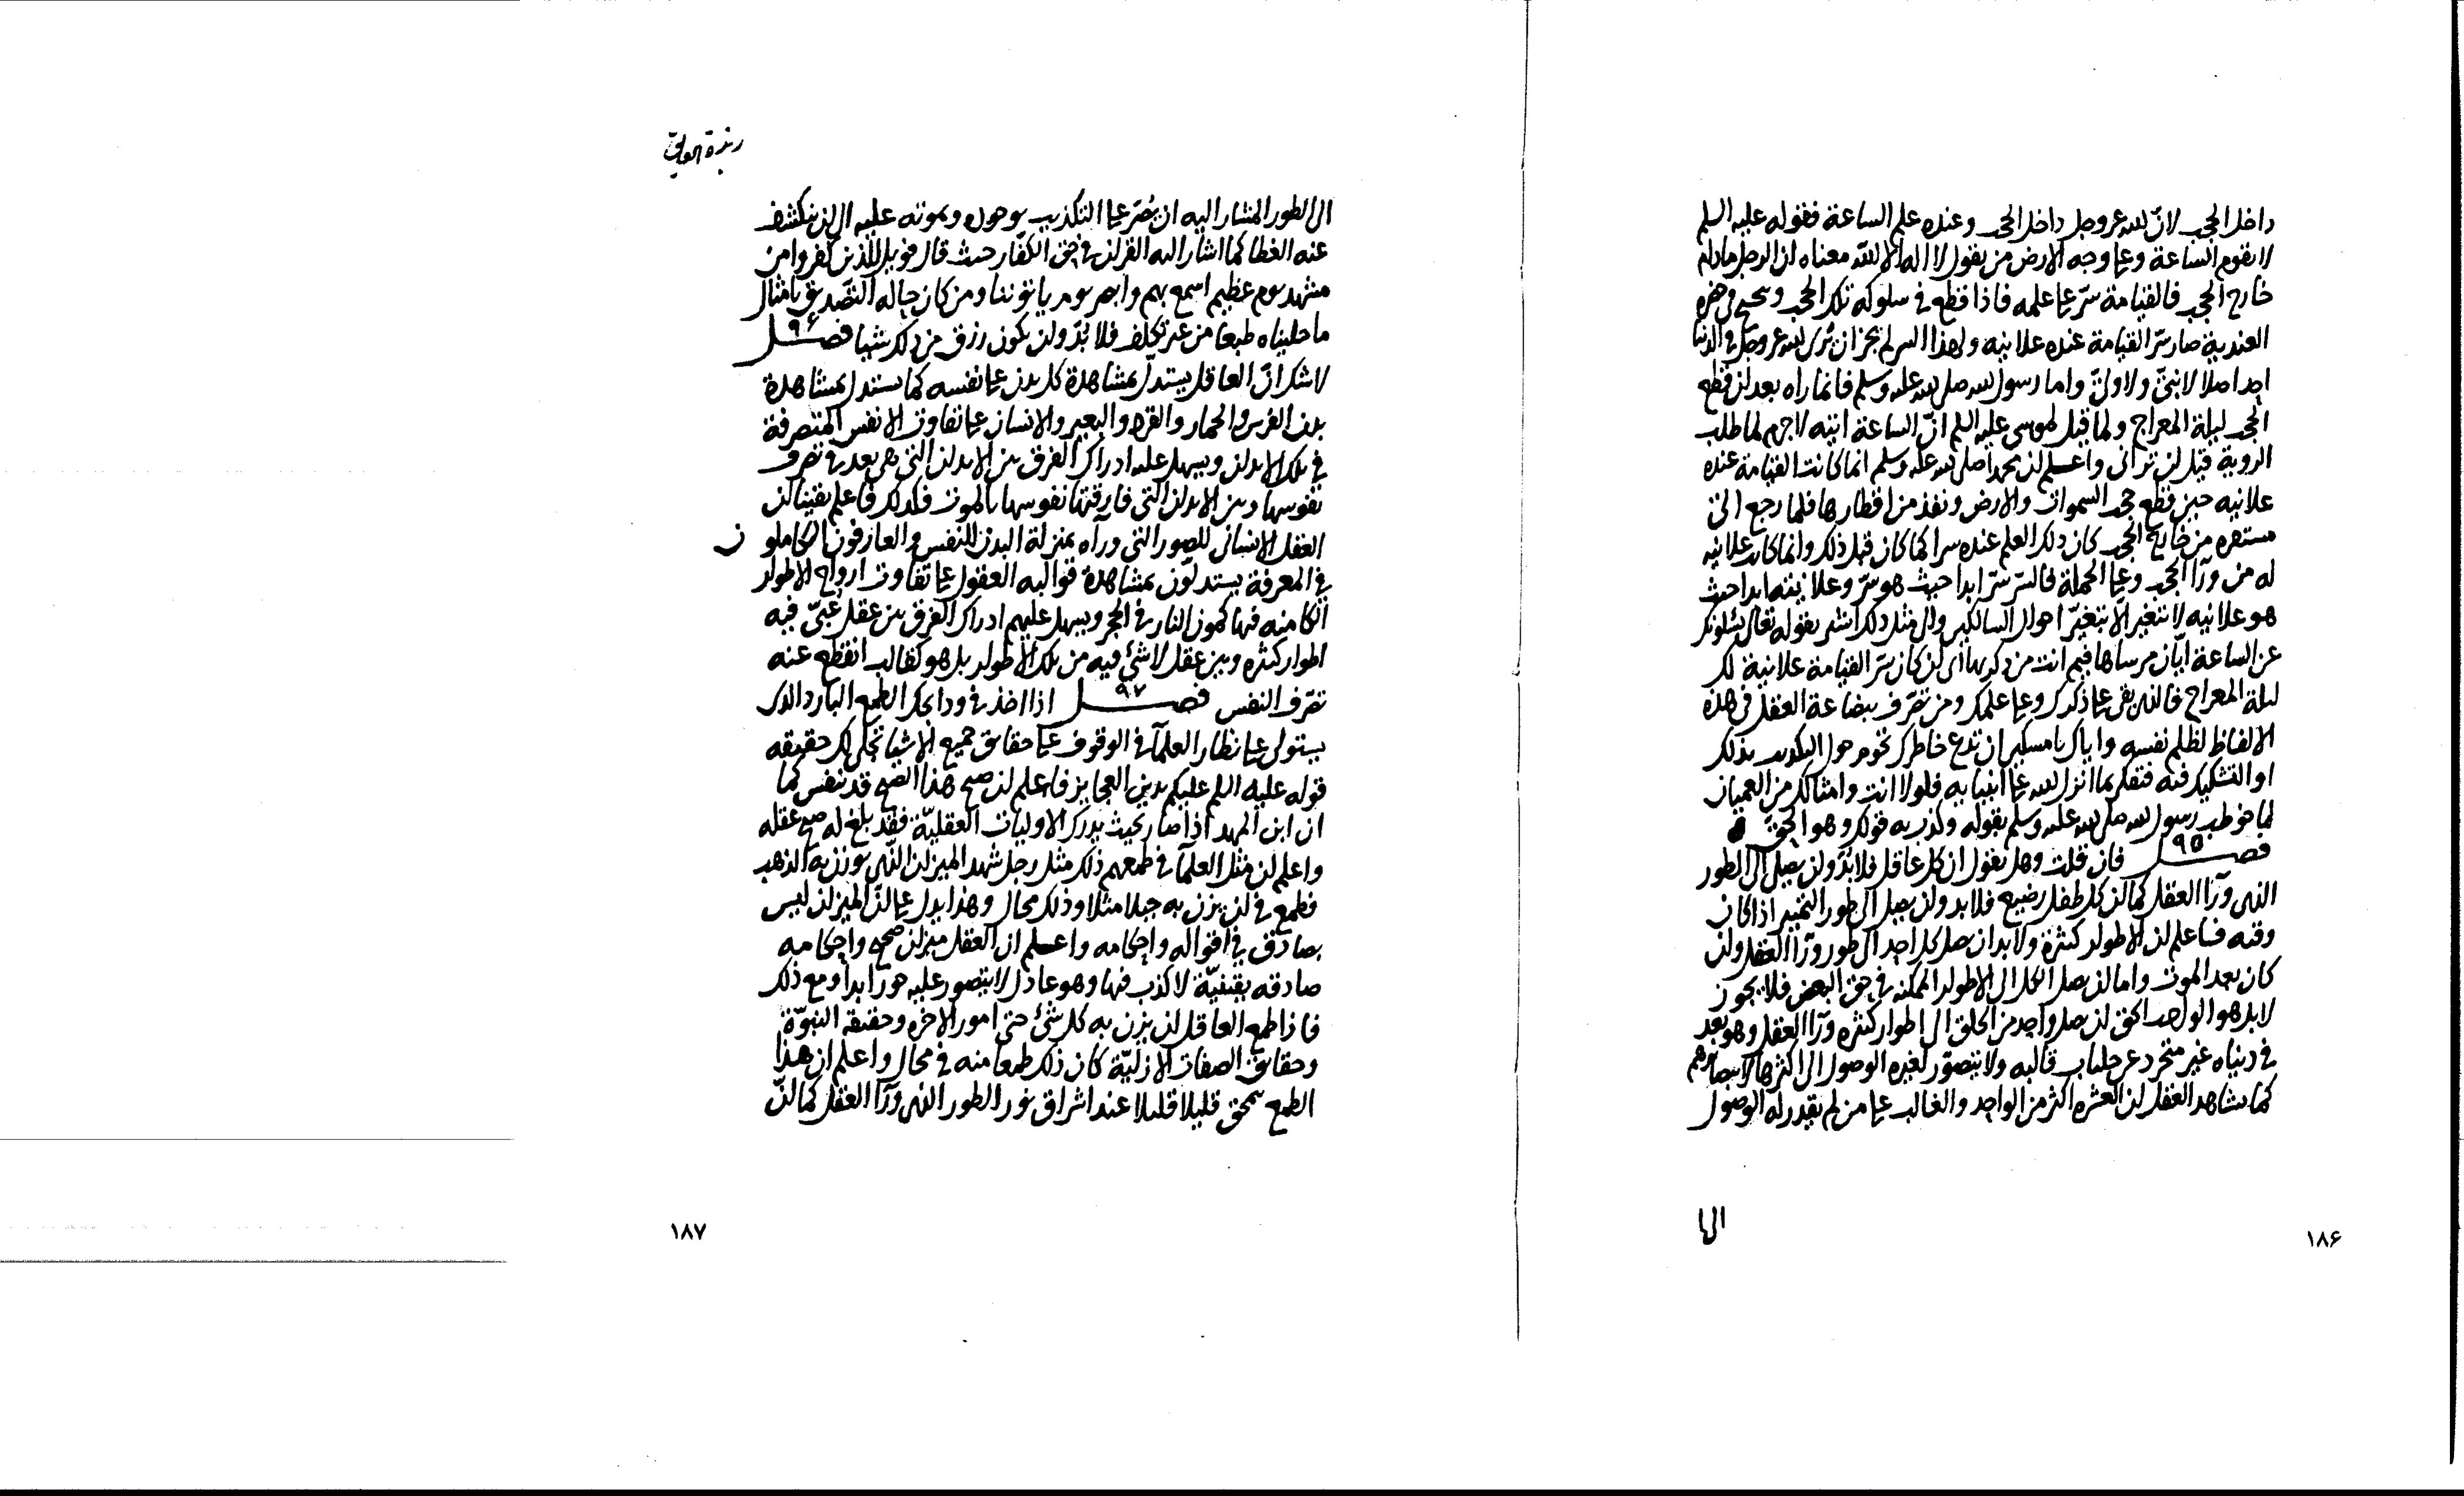 داخل الحجب لانّ الله عز وجل داخل الحجب وعنده علم الساعة فقوله عليه السلم
لا تقوم الساعة وعلى وجه الارض من يقول لا اله الا الله معناه ان الرجل مادام
خارج الحجب فالقيامة سرّ على علمه فاذا قطع في سلوكه تلك الحجب وسح في حضرة
العندية صار سرّ القيامة عنده علانية ولهذا السر لم يجز ان يُرى الله عز وجل في الدنيا
احد اصلا لا نبىّ ولا ولىّ واما رسول الله صلى الله عليه وسلم فانما راه بعد ان قطع
الحجب ليلة المعراج ولما قيل لموسى عليه السلم انّ الساعة اتيه لا جرم لما طلب
الروية قيل لن ترانى واعلم ان محمدا صلى الله عليه وسلم انما كانت القيامة عنده
علانيه حين قطع حجب السموات والارض ونفذ من اقطارها فلما رجع الى
مستقره من خارج الحجب كان ذلك العلم عنده سرا كما كان قبل ذلك وانما كان علانيه
له من ورآ الحجب وعلى الجملة فالسر سرّ ابدا حيث هو سرّ وعلانيته ابدا حيث
هو علانيه لا تتغير الا بتغيّر احوال السالكين والى مثل ذلك اشير بقوله تعالى يسئلونك
عن الساعة ايّان مرساها فيم انت من ذكريها اى ان كان سرّ القيامة علانية لك
ليلة المعراج فالذى بقى على ذكرك وعلى علمك ومن تصّرف ببضاعة العقل فى هذه
الالفاظ لظلم نفسه واياك يا مسكين ان تدع خاطرك يحوم حول التكذيب بذلك
او التشكيك فيه فتفكر بما انزل الله على انبيايه فلولا انت وامثالك من العميان
لما خوطب رسول الله صلى الله عليه وسلم بقوله وكذب به قومك وهو الحق
فصل ٩٥ فان قلت وهل تقول ان كل عاقل فلا بدّ وان يصل الى الطور
الذى ورآ العقل كما ان كل طفل رضيع فلا بد وان يصل الى طور التمييز اذا كان
وقته فاعلم ان الاطوار كثيرة ولا بد ان يصل كل احد الى طور ورآ العقل وان
كان بعد الموت واما ان يصل الكل الى الاطوار الممكنه في حق البعض فلا يجوز
لا بل هو الواحد الحق ان يصل واحد من الخلق الى اطوار كثيره ورآ العقل وهو بعد
في دنياه غير متجرد عن جلباب قالبه ولا يتصوّر لغيره الوصول الى اكثرها
كما يشاهد العقل ان العشره اكثر من الواحد والغالب على من لم يقدر له الوصول
الى
١٨۶
زبدة الحقايق
الى الطور المشار اليه ان يُصّر على التكذيب بوجوده ويموت عليه الى ان ينكشف
عنه الغطا كما اشار اليه القران في حق الكفّار حيث قال فويل للذين كفروا من
مشهد يوم عظيم اسمع بهم وابصر يوم ياتوننا ومن كان حاله التصّديق بامثال
ما حكيناه طبعا من غير تكلف فلا بُدّ وان يكون رزق من ذلك شيا فصل ٩۶
لا شك انّ العاقل يستدل بمشاهدة كل بدن على نفسه كما يستدل بمشاهدة
بدن الفرس والحمار والقرد والبعير والانسان على تفاوت الانفس المتصرفة
في تلك الابدان ويسهل عليه ادراك الفرق بين الابدان التى هى بعد في تصرف
نفوسها وبين الابدان التى فارقتها نفوسها بالموت فكذلك فاعلم يقينا ان
العقل الانسانى للصور التى ورآه بمنزلة البدن للنفس والعارفون الكاملون
في المعرفة يستدلوّن بمشاهدة قوالب العقول على تفاوت ارواح الاطوار
الكامنه فيها كمون النار في الحجر ويسهل عليهم ادراك الفرق بين عقل خُبّى فيه
اطوار كثيره وبين عقل لا شئ فيه من تلك الاطوار بل هو كقالب انقطع عنه
تصّرف النفس فصل ٩٧ اذا اخذ في وداعك الطمع البارد الذى
يستولى على نظار العلمآ في الوقوف على حقايق جميع الاشيا تجلى لك حقيقه
قوله عليه السلم عليكم بدين العجايز فاعلم ان صبح هذا الفتح قد تنفس كما
ان ابن المهد اذا صار بحيث يدرك الاوليات العقليّة فقد بلغ له صبح عقله
واعلم ان مثل العلمآ في طمعهم ذلك مثل رجل شهد الميزان الذى يوزن به الذهب
فطمع في ان يزن به جبلا مثلا وذلك محال وهذا يدل على انّ الميزان ليس
بصادق في اقواله واحكامه واعلم ان العقل ميزان صحيح واحكامه
صادقه يقينيّة لا كذب فيها وهو عادل لا يتصور عليه جور ابدا ومع ذلك
فاذا طمع العاقل ان يزن به كل شئ حتى امور الاخره وحقيقة النبوّة
وحقايق الصفات الازليّة كان ذلك طمعا منه في محال واعلم ان هذا
الطمع يمحق قليلا قليلا عند اشراق نور الطور الذى ورآ العقل كما انّ
١٨٧